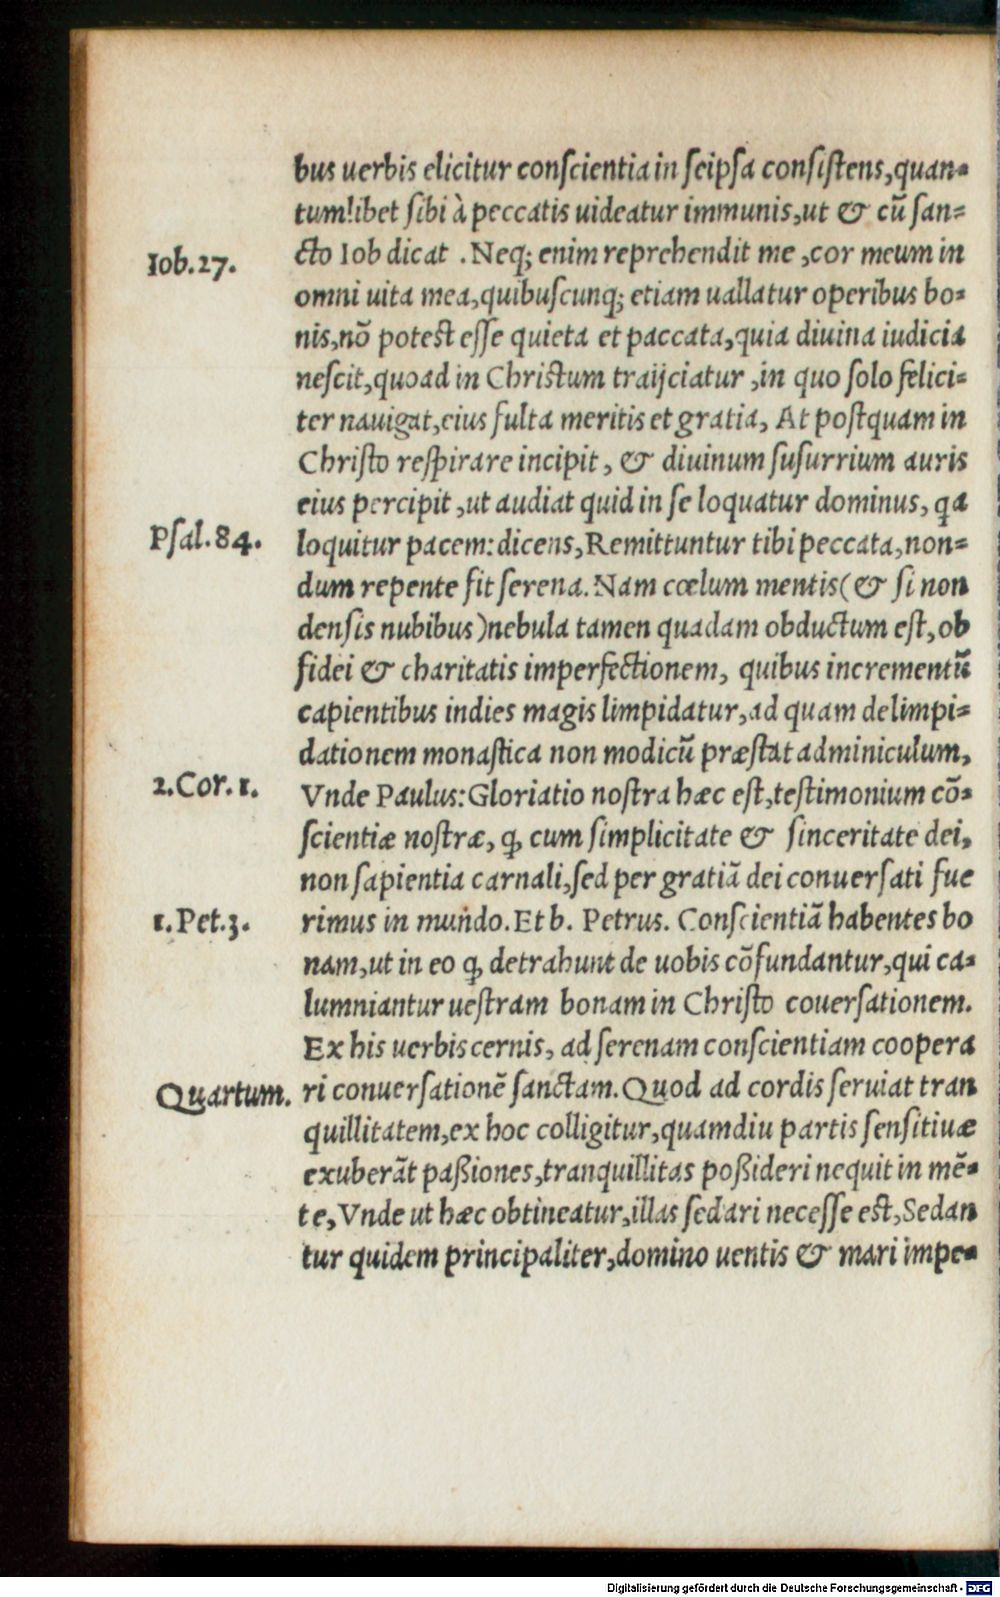 bus uerbis elicitur conſcientia in ſeipſa conſiſtens, quan-
tumlibet ſibi à peccatis uideatur immunis, ut & cū ſan-
cto Iob dicat . Neq; enim reprehendit me, cor meum in
Iob. 27.
omni uita mea, quibuſcunq; etiam uallatur operibus bo-
nis, nō poteſt eſſe quieta et paccata, quia diuina iudicia
neſcit, quoad in Chriſtum traijciatur, in quo ſolo felici-
ter nauigat, eius fulta meritis et gratia, At poſtquam in
Chriſto reſpirare incipit, & diuinum ſuſurrium auris
eius percipit, ut audiat quid in ſe loquatur dominus, qa
Pſal. 84.
loquitur pacem: dicens, Remittuntur tibi peccata, non-
dum repente fit ſerena. Nam cœlum mentis (& ſi non
denſis nubibus) nebula tamen quadam obductum eſt, ob
fidei & charitatis imperfectionem, quibus incrementū
capientibus indies magis limpidatur, ad quam delimpi-
dationem monaſtica non modicū præſtat adminiculum,
2. Cor. 1.
Vnde Paulus: Gloriatio noſtra hæc eſt, teſtimonium cō-
ſcientiæ noſtræ, ꝙ cum ſimplicitate & ſinceritate dei,
non ſapientia carnali, ſed per gratiā dei conuerſati fue
1. Pet. 3.
rimus in mundo. Et b. Petrus. Conſcientiā habentes bo
nam, ut in eo ꝙ detrahunt de uobis cōfundantur, qui ca-
lumniantur ueſtram bonam in Chriſto couerſationem.
Ex his uerbis cernis, ad ſerenam conſcientiam coopera
Quartum.
ri conuerſationē ſanctam. Quod ad cordis ſeruiat tran
quillitatem, ex hoc colligitur, quamdiu partis ſenſitiuæ
exuberāt paßiones, tranquillitas poßideri nequit in mē-
te, Vnde ut hæc obtineatur, illas ſedari neceſſe eſt, Sedan
tur quidem principaliter, domino uentis & mari impe-
Digitalisierung gefördert durch die Deutsche Forschungsgemeinschaft - DFG